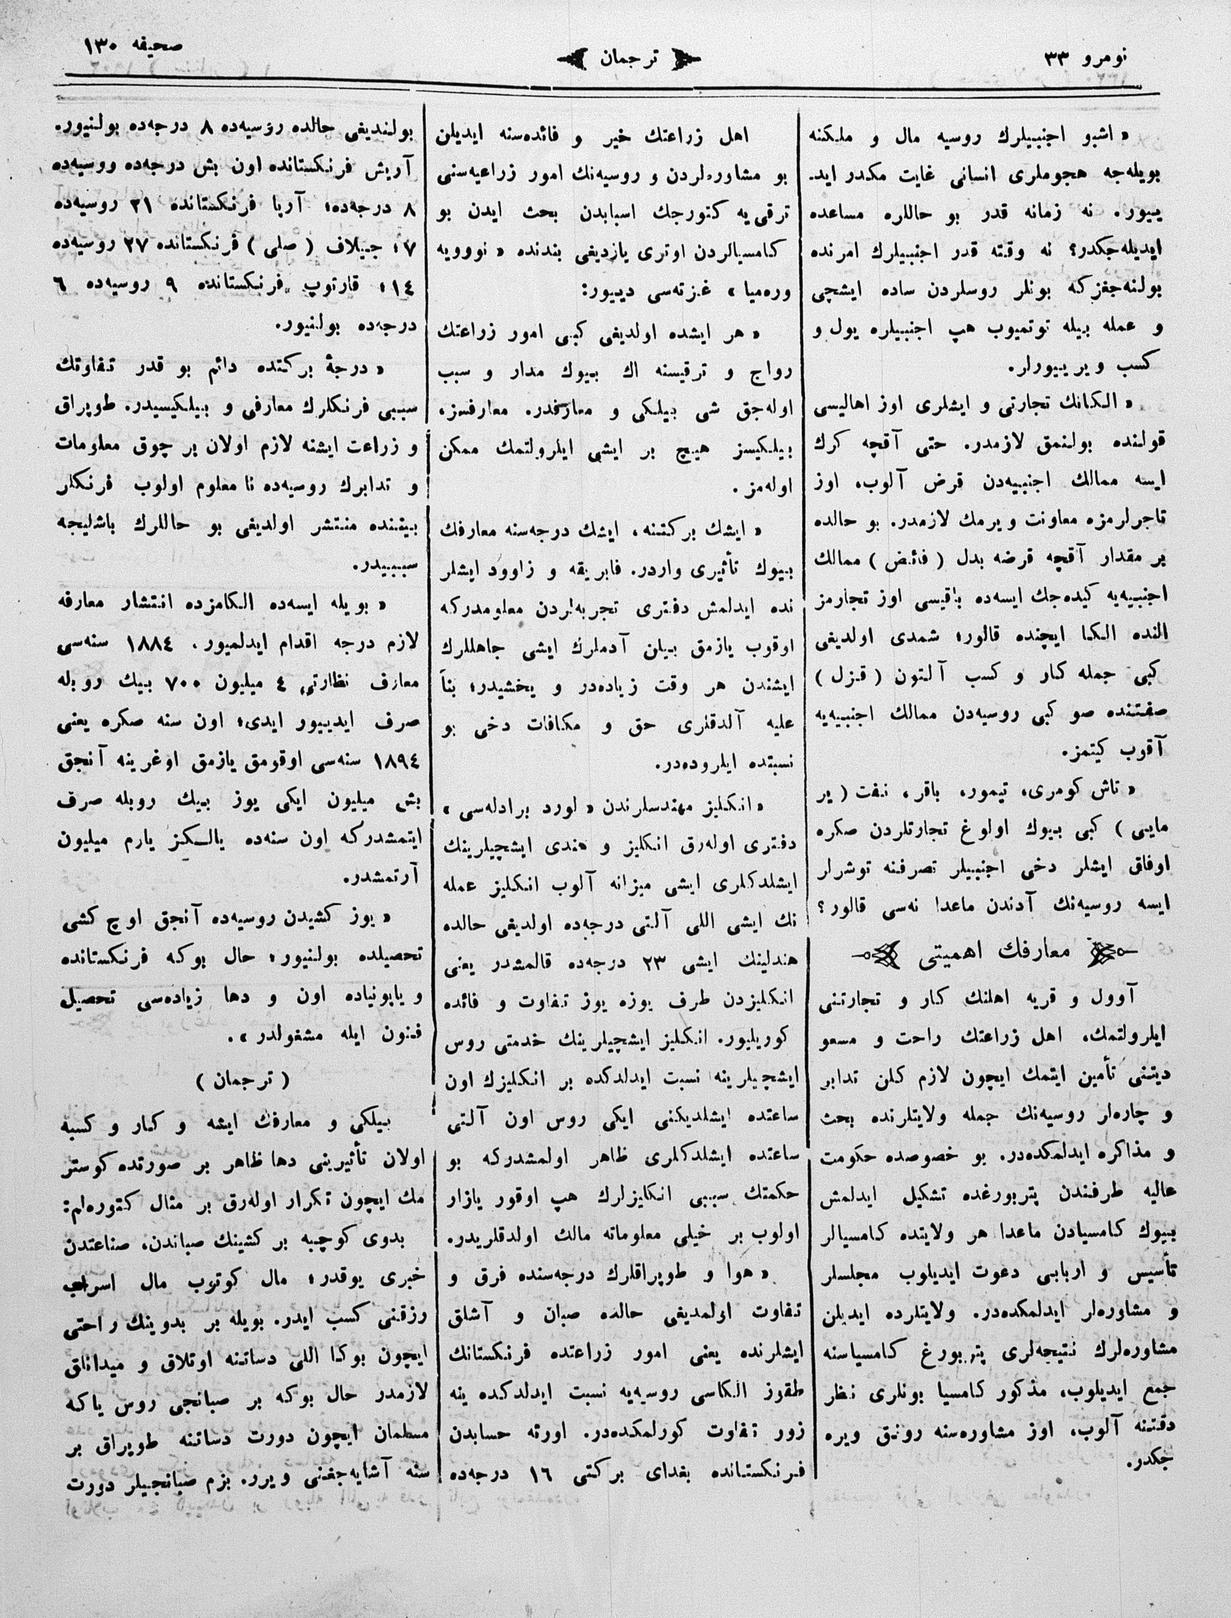 نومرو ٣٣
ترجمان
صحيفه ١٣٠
« اشبو اجنبيلرك روسيه مال و ملكنه
بويله‌جه هجوملرى انسانى غايت مكدر ايد-
ييور. نه زمانه قدر بو حاللره مساعده
ايديله‌جكدر؟ نه وقته قدر اجنبيلرك امرنده
بولنه‌جغزكه بونلر روسلردن ساده ايشچى
و عمله بيله توتميوب هپ اجنبيلره يول و
كسب ويرييورلر.
« الكانك تجارتى و ايشلرى اوز اهاليسى
قولنده بولنمق لازمدر. حتى آقچه كرك
ايسه ممالك اجنبيه‌دن قرض آلوب، اوز
تاجرلرمزه معاونت ويرمك لازمدر. بو حالده
بر مقدار آقچه قرضه بدل ( فائض ) ممالك
اجنبيه‌يه كيده‌جك ايسه‌ده باقيسى اوز تجارمز
النده الكا ايچنده قالور؛ شمدى اولديغى
كبى جمله كار و كسب آلتون ( قزل )
صفتنده صو كبى روسيه‌دن ممالك اجنبيه‌يه
آقوب كيتمز.
« تاش كومرى، تيمور، باقر، نفت ( ير
مايى ) كبى بيوك اولوغ تجارتلردن صكره
اوفاق ايشلر دخى اجنبيلر تصرفنه توشرلر
ايسه روسيه‌نك آدندن ماعدا نه‌سى قالور؟
معارفك اهميتى
آوول و قريه اهلنك كار و تجارتنى
ايلرولتمك، اهل زراعتك راحت و مسعو
ديتنى تأمين ايتمك ايچون لازم كلن تدابر
و چاره‌لر روسيه‌نك جمله ولايتلرنده بحث
و مذاكره ايدلمكده‌در. بو خصوصده حكومت
عاليه طرفندن پتربورغده تشكيل ايدلمش
بيوك كامسيادن ماعدا هر ولايتده كامسيالر
تأسيس و اربابى دعوت ايديلوب مجلسلر
و مشاوره‌لر ايدلمكده‌در. ولايتلرده ايديلن
مشاوره‌لرك نتيجه‌لرى پتربورغ كامسياسنه
جمع ايديلوب، مذكور كامسيا بونلرى نظر
دقتنه آلوب، اوز مشاوره‌سنه رونق ويره
جكدر.
اهل زراعتك خير و فائده‌سنه ايديلن
بو مشاوره‌لردن و روسيه‌نك امور زراعيه‌سنى
ترقى‌يه كتورجك اسبابدن بحث ايدن بو
كامسيالردن اوترى يازديغى بندنده « نووويه
وره‌ميا » غزته‌سى دييور:
« هر ايشده اولديغى كبى امور زراعتك
رواج و ترقيسنه اك بيوك مدار و سبب
اوله‌جق شى بيلكى و معارفدر. معارفسز،
بيلكيسز هيچ بر ايشى ايلرولتمك ممكن
اوله‌مز.
« ايشك بركتنه، ايشك درجه‌سنه معارفك
بيوك تأثيرى واردر. فابريقه و زاوود ايشلر
نده ايدلمش دفترى تجربه‌لردن معلومدركه
اوقوب يازمق بيلن آدملرك ايشى جاهللرك
ايشندن هر وقت زياده‌در و يخشيدر؛ بناً
عليه آلدقلرى حق و مكافات دخى بو
نسبتده ايلروده‌در.
« انكليز مهندسلرندن « لورد برادله‌سى »
دفترى اوله‌رق انكليز و هندى ايشچيلرينك
ايشلدكلرى ايشى ميزانه آلوب انكليز عمله
نك ايشى اللى آلتى درجه‌ده اولديغى حالده
هندلينك ايشى ٢٣ درجه‌ده قالمشدر يعنى
انكليزدن طرف يوزه يوز تفاوت و فائده
كوريليور. انكليز ايشچيلرينك خدمتى روس
ايشچيلرينه نسبت ايدلدكده بر انكليزك اون
ساعتده ايشلديكنى ايكى روس اون آلتى
ساعتده ايشلدكلرى ظاهر اولمشدركه بو
حكمتك سببى انكليزلرك هپ اوقور يازار
اولوب بر خيلى معلوماته مالك اولدقلريدر.
« هوا و طوپراقلرك درجه‌سنده فرق و
تفاوت اولمديغى حالده صبان و آشلق
ايشلرنده يعنى امور زراعتده فرنكستانك
طقوز الكاسى روسيه‌يه نسبت ايدلدكده ينه
زور تفاوت كورلمكده‌در. اورته حسابدن
فرنكستانده بغداى بركتى ١٦ درجه‌ده
بولنديغى حالده روسيه‌ده ٨ درجه‌ده بولنيور.
آريش فرنكستانده اون بش درجه‌ده روسيه‌ده
٨ درجه‌ده؛ آرپا فرنكستانده ٢١ روسيه‌ده
٧؛ جيلاف ( صلى ) فرنكستانده ٢٧ روسيه‌ده
١٤؛ قارتوپ فرنكستانده ٩ روسيه‌ده ٦
درجه‌ده بولنيور.
« درجهٔ بركتده دائم بو قدر تفاوتك
سببى فرنكلرك معارفى و بيلكيسيدر. طوپراق
و زراعت ايشنه لازم اولان بر چوق معلومات
و تدابرك روسيه‌ده نامعلوم اولوب فرنكلر
بيننده منتشر اولديغى بو حاللرك باشليجه
سببيدر.
« بويله ايسه‌ده الكامزده انتشار معارفه
لازم درجه اقدام ايدلميور. ١٨٨٤ سنه‌سى
معارف نظارتى ٤ ميليون ٧٠٠ بيك روبله
صرف ايدييور ايدى؛ اون سنه صكره يعنى
١٨٩٤ سنه‌سى اوقومق يازمق اوغرينه آنجق
بش ميليون ايكى يوز بيك روبله صرف
ايتمشدركه اون سنه‌ده يالكز يارم ميليون
آرتمشدر.
« يوز كشيدن روسيه‌ده آنجق اوچ كشى
تحصيلده بولنيور؛ حال بوكه فرنكستانده
و ياپونياده اون و دها زياده‌سى تحصيل
فنون ايله مشغولدر ».
( ترجمان )
بيلكى و معارفك ايشه و كار و كسبه
اولان تأثيرينى دها ظاهر بر صورتده كوستر
مك ايچون تكرار اوله‌رق بر مثال كتوره‌لم:
بدوى كوچبه بر كشينك صباندن، صناعتدن
خبرى يوقدر؛ مال كوتوب مال اسراب
رزقنى كسب ايدر. بويله بر بدوينك راحتى
ايچون بوكا اللى دساتنه اوتلاق و ميدانلق
لازمدر حال بوكه بر صبانجى روس ياكه
مسلمان ايچون دورت دساتنه طوپراق بر
سنه آشايه‌جغنى ويرر. بزم صبانجيلر دورت